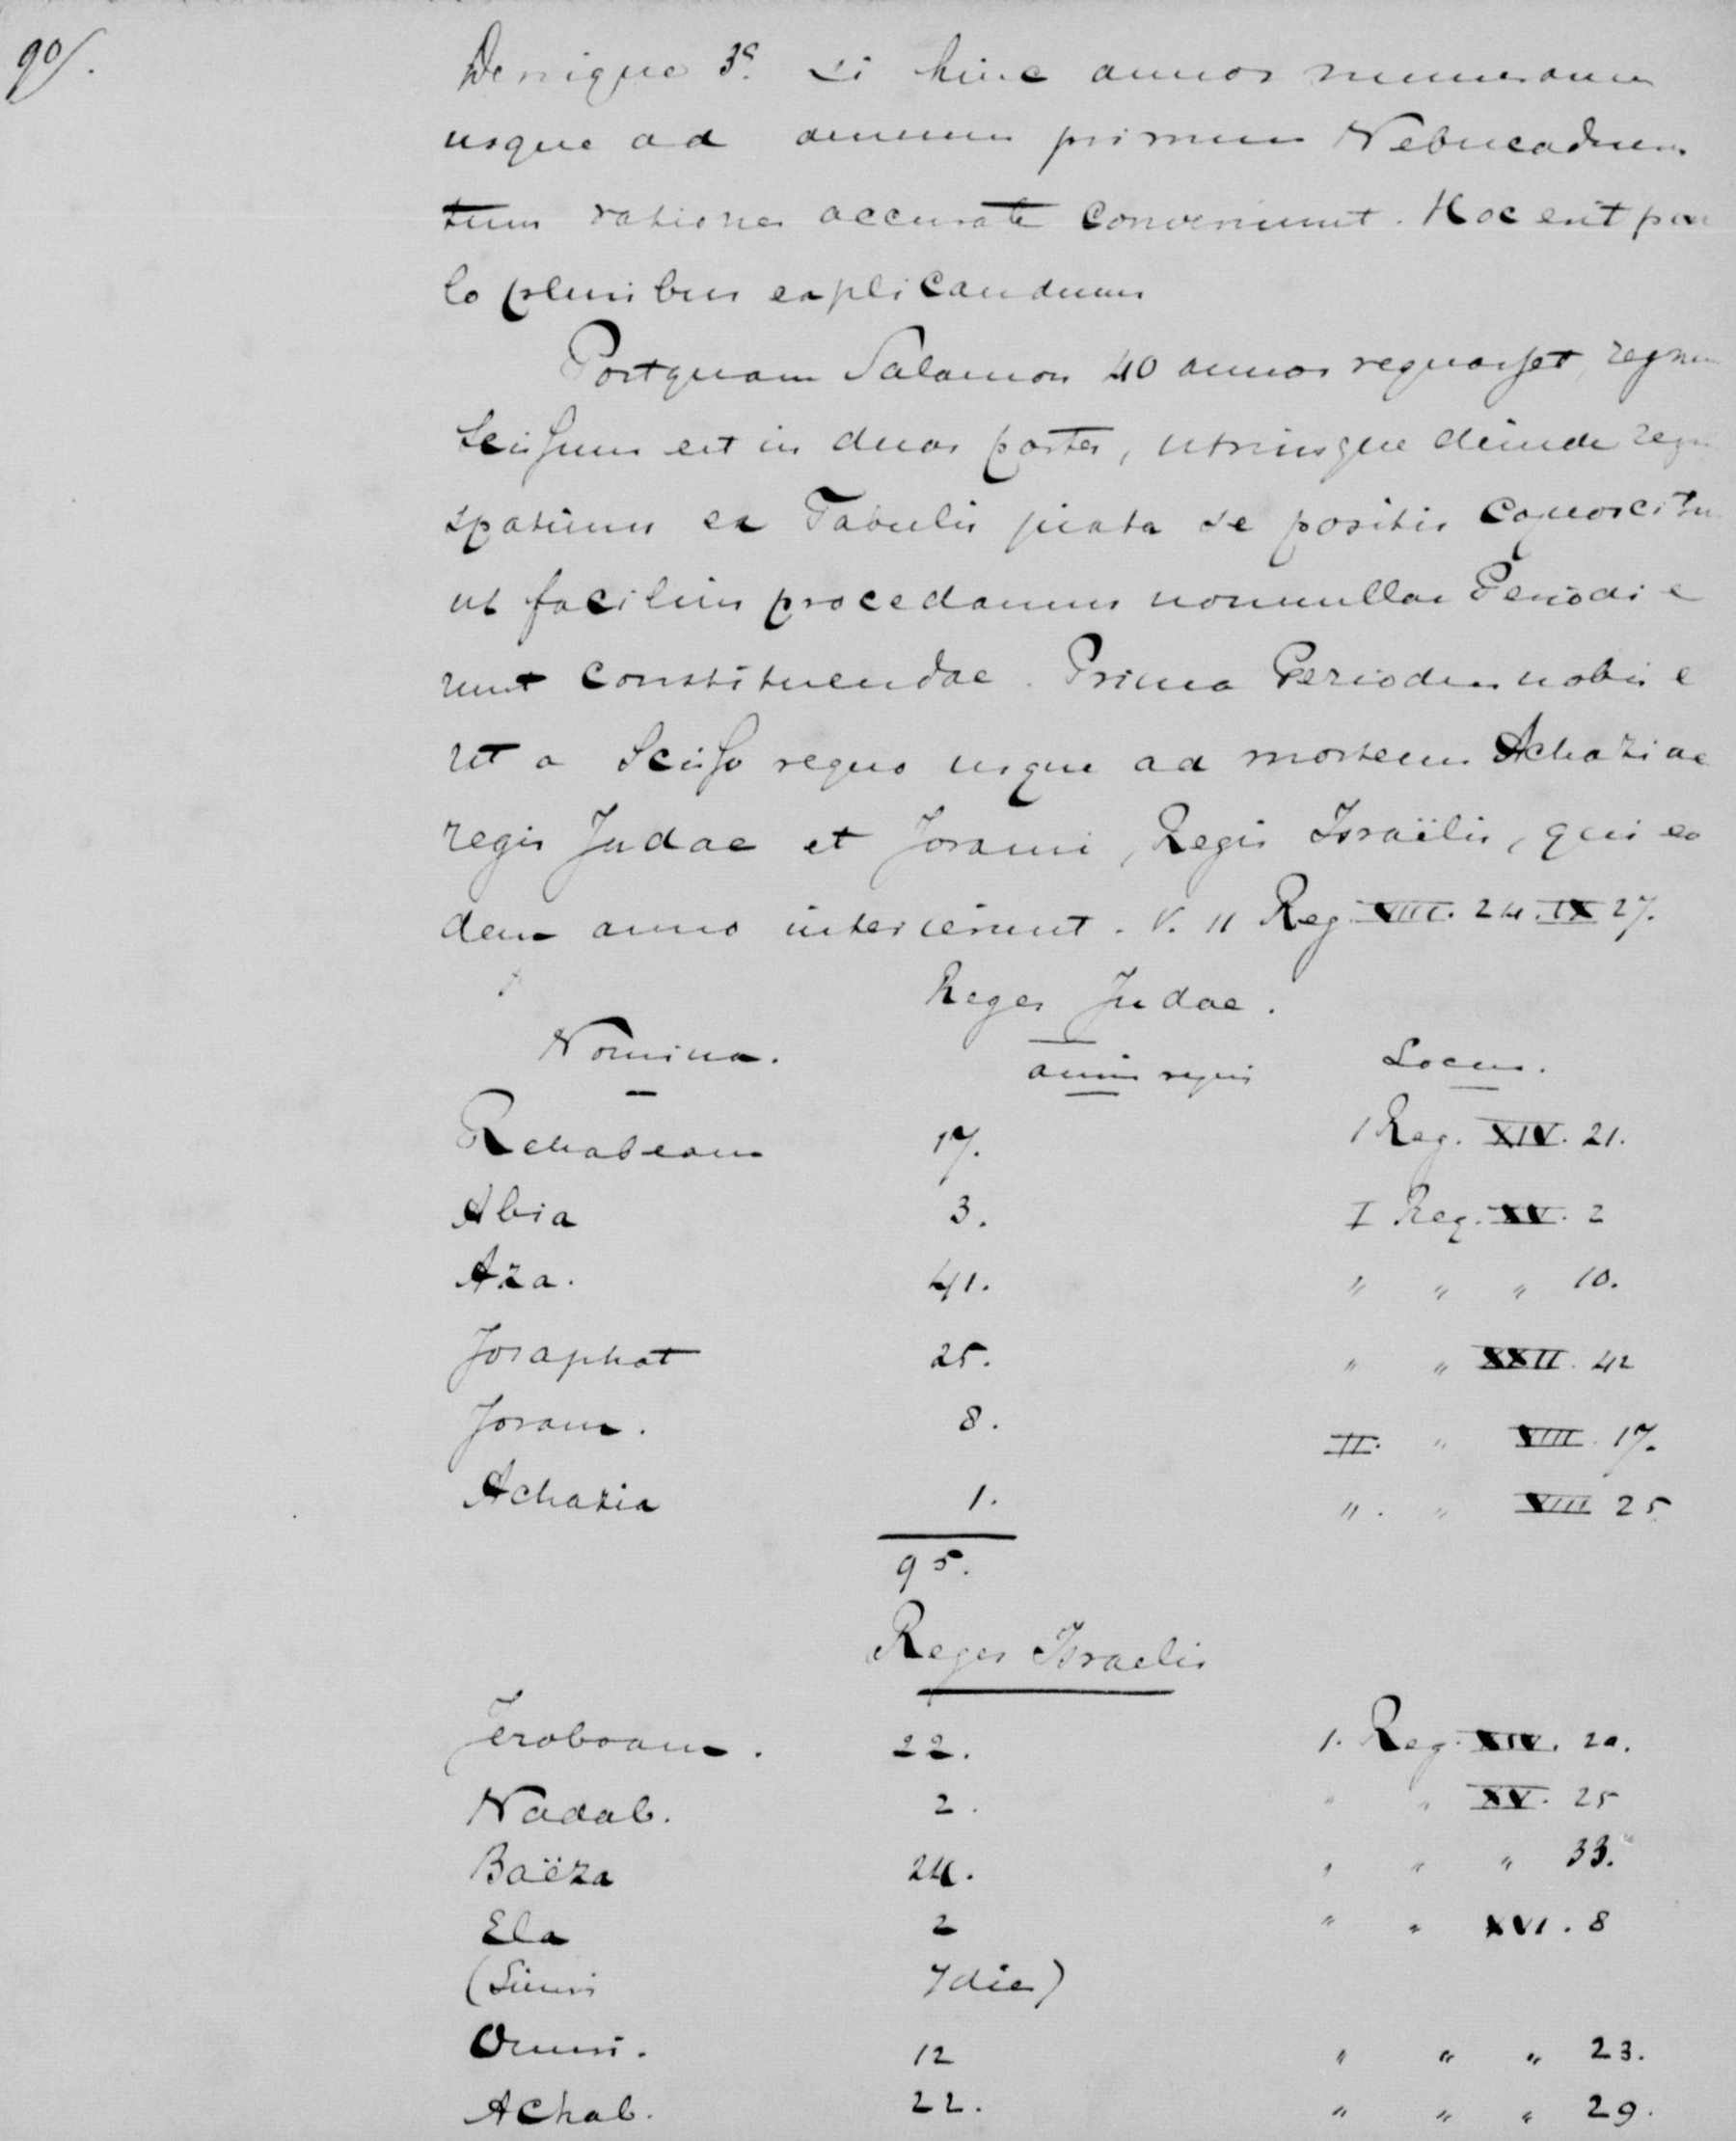 90/.
Denique 3o. si hinc annos numeramus
usque ad annum primum Nebucadnez.
tum rationes accurate conveniunt. Hoc erit pau
lo pluribus explicandum
Postquam Salamon 40 annos regnasset, regnum
scissum est in duas partes, utriusque deinde regni
spatium ex Tabulis juxta se positis cognoscitur
ut facilius procedamus nonnullae Periodi e
runt constituendae. Prima Periodus nobis e
rit a scisso regno usque ad mortem Achaziae
regis Judae et Jorami, Regis Israëlis, qui eo
dem anno interierunt. V. II Reg. VIII. 24. IX 27.
Reges Judae.
Nomina. anni regni Locus.
Rehabeam 17. I Reg. XIV. 21.
Abia 3. I Reg. XV. 2
Aza. 41. " " " 10.
Josaphat 25. " " XXII. 42
Joram. 8. II. " VIII. 17.
Achazia 1. ". " VIII 25
95.
Reges Israelis
Jeroboam. 22. 1. Reg. XIV. 20.
Nadab. 2. " " XV. 25
Baëza 24. " " " 33.
Ela 2 " " XVI. 8
(Simri 7 dies)
Omri. 12 " " " 23.
Achab. 22. " " " 29.